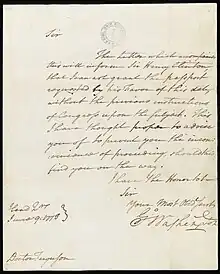 Sir
The Letter which accompanies
this will inform Sir Henry Clinton
that I can not grant the passport
requested by his Favor of this date,
without the previous instructions
of Congress upon the subject. This
I have thought proper to advise
you of to prevent you the incon-
venience of proceeding should this
find you on the way.
I have the Honor to be
Sir
Your Most Obed Servt
Go Washington
June 9. 1778
Doctor Ferguson